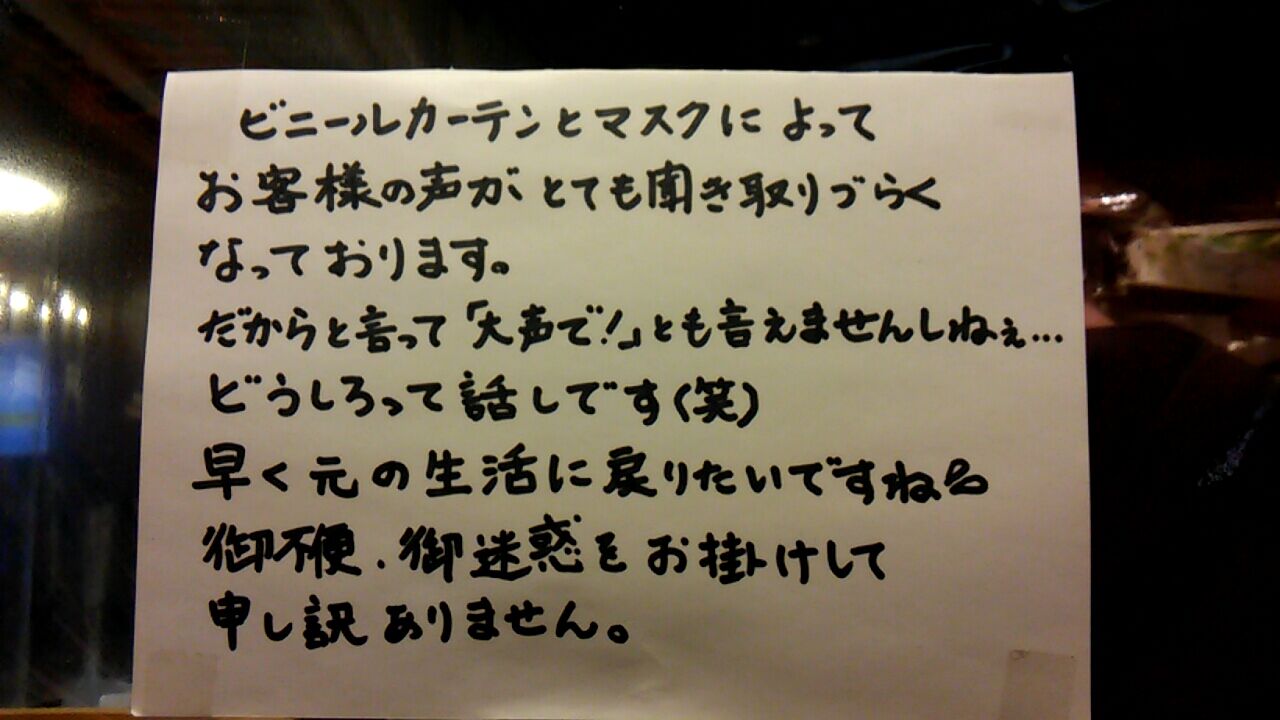 ビニールカーテンとマスクによって
お客様の声がとても聞き取りづらく
なっております。
だからと言って「大声で!」とも言えませんしねぇ…
どうしろって話しです(笑)
早く元の生活に戻りたいですね
御不便.御迷惑をお掛けして
申し訳ありません。